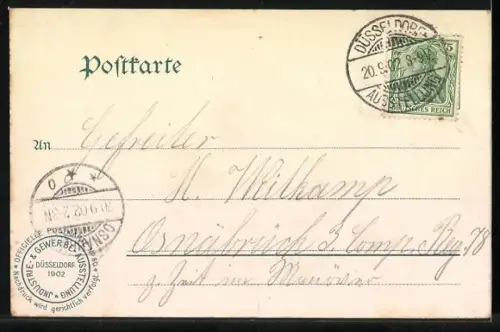 Postkarte
DÜSSELDORF
20.9.02 8-9N
AUSSTELLUNG
5
REICH
An Gefreiter
H. Weitkamp
Osnabrück 3. Comp. Reg. 78
z. Zeit im Manöver
OSNA
9.02.2-3N
OFFICIELLE POSTKARTE
INDUSTRIE- & GEWERBE-AUSSTELLUNG
DÜSSELDORF
1902
Nachdruck wird gerichtlich verfolgt.